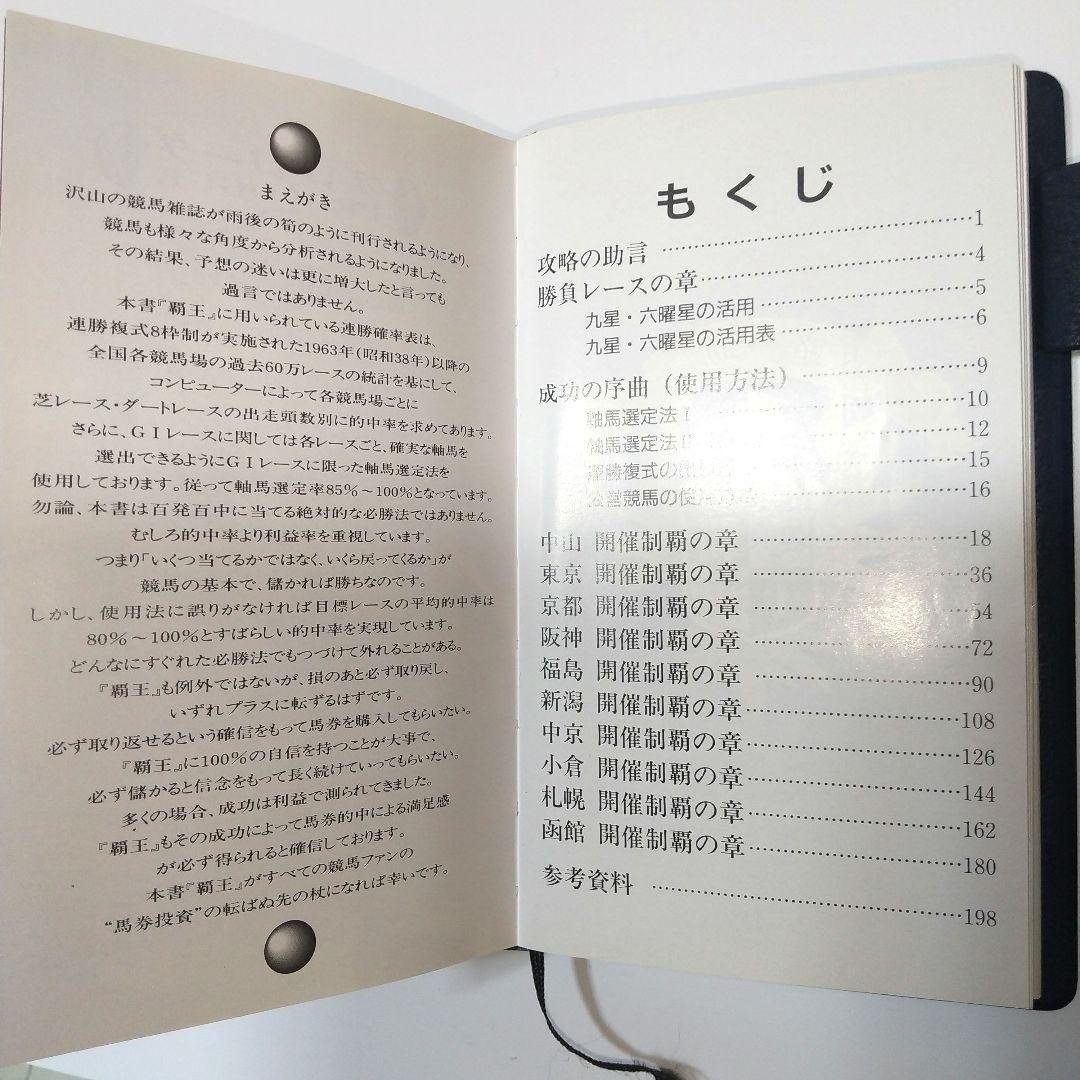 まえがき
沢山の競馬雑誌が雨後の筍のように刊行されるようになり、
競馬も様々な角度から分析されるようになりました。
その結果、予想の迷いは更に増大したと言っても
過言ではありません。
本書『覇王』に用いられている連勝確率表は、
連勝複式8枠制が実施された1963年(昭和38年)以降の
全国各競馬場の過去60万レースの統計を基にして、
コンピューターによって各競馬場ごとに
芝レース・ダートレースの出走頭数別に的中率を求めてあります。
さらに、GIレースに関しては各レースごと、確実な軸馬を
選出できるようにGIレースに限った軸馬選定法を
使用しております。従って軸馬選定率85%～100%となっています。
勿論、本書は百発百中に当てる絶対的な必勝法ではありません。
むしろ的中率より利益率を重視しています。
つまり「いくつ当てるかではなく、いくら戻ってくるか」が
競馬の基本で、儲かれば勝ちなのです。
しかし、使用法に誤りがなければ目標レースの平均的中率は
80%～100%とすばらしい的中率を実現しています。
どんなにすぐれた必勝法でもつづけて外れることがある。
『覇王』も例外ではないが、損のあと必ず取り戻し、
いずれプラスに転ずるはずです。
必ず取り返せるという確信をもって馬券を購入してもらいたい。
『覇王』に100%の自信を持つことが大事で、
必ず儲かると信念をもって長く続けていってもらいたい。
多くの場合、成功は利益で測られてきました。
『覇王』もその成功によって馬券的中による満足感
が必ず得られると確信しております。
本書『覇王』がすべての競馬ファンの
“馬券投資”の転ばぬ先の杖になれば幸いです。
もくじ
攻略の助言 ……………………1
勝負レースの章……………………4
九星・六曜星の活用……………………5
九星・六曜星の活用表……………………6
成功の序曲（使用方法）……………………9
軸馬選定法I……………………10
軸馬選定法II……………………12
連勝複式の……………………15
公営競馬の使用……………………16
中山 開催制覇の章……………………18
東京 開催制覇の章……………………36
京都 開催制覇の章……………………54
阪神 開催制覇の章……………………72
福島 開催制覇の章……………………90
新潟 開催制覇の章……………………108
中京 開催制覇の章……………………126
小倉 開催制覇の章……………………144
札幌 開催制覇の章……………………162
函館 開催制覇の章……………………180
参考資料 ……………………198